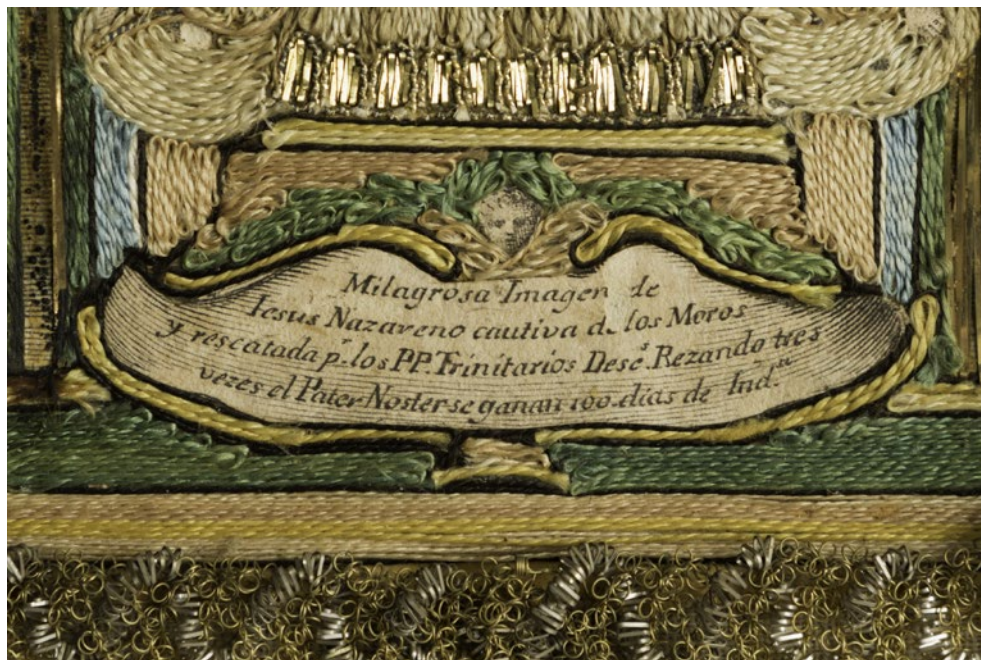 Milagrosa Imagen de
Iesus Nazareno cautiva de los Moros
y rescatada p.ʳ los PP. Trinitarios Desc.ˢ Rezando tres
vezes el Pater Noster se ganan 100 dias de Ind.ᵃ